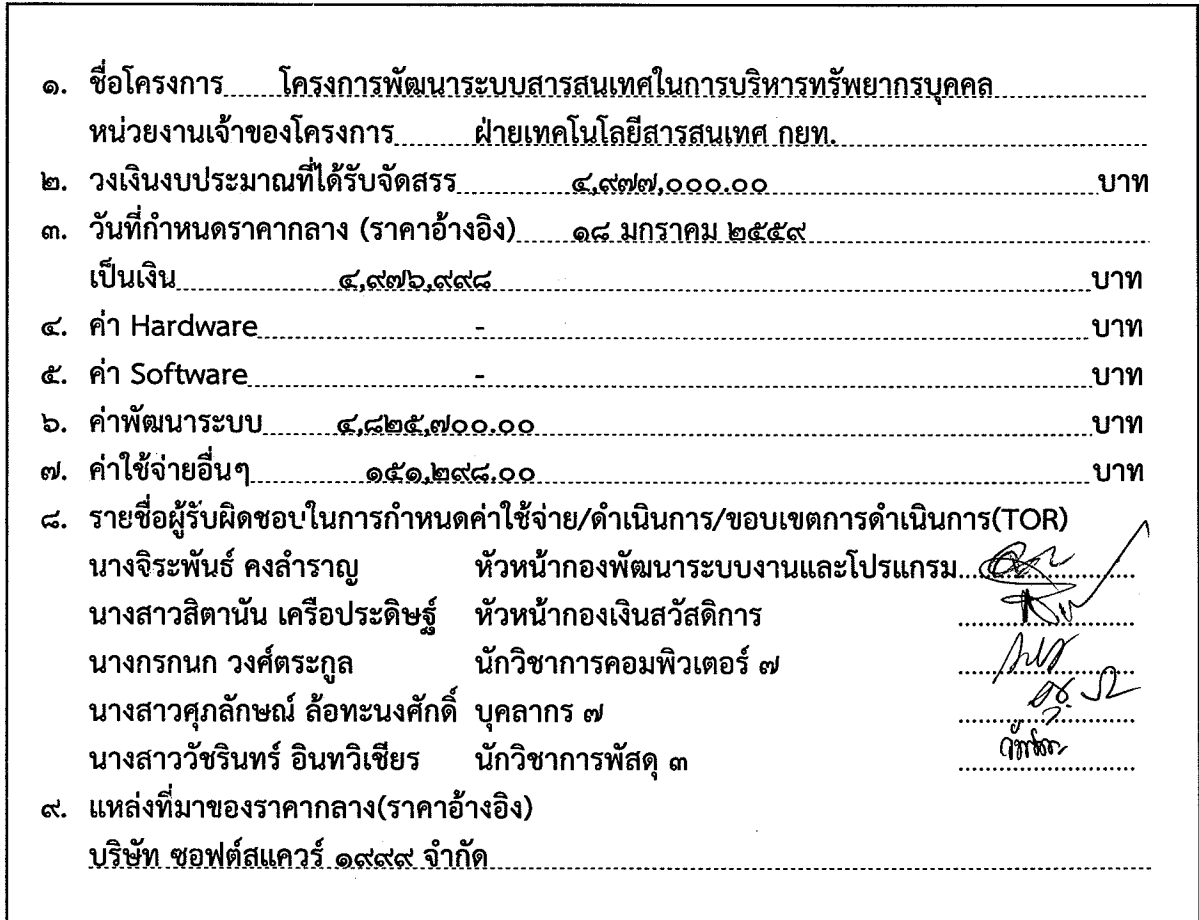 ๑. ชื่อโครงการ โครงการพัฒนาระบบสารสนเทศในการบริหารทรัพยากรบุคคล
หน่วยงานเจ้าของโครงการ ฝ่ายเทคโนโลยีสารสนเทศ กยท.
๒. วงเงินงบประมาณที่ได้รับจัดสรร ๔,๙๗๗,๐๐๐.๐๐ บาท
๓. วันที่กำหนดราคากลาง (ราคาอ้างอิง) ๑๘ มกราคม ๒๕๕๙
เป็นเงิน ๔,๙๗๖,๙๙๘ บาท
๔. ค่า Hardware - บาท
๕. ค่า Software - บาท
๖. ค่าพัฒนาระบบ ๔,๘๒๕,๗๐๐.๐๐ บาท
๗. ค่าใช้จ่ายอื่นๆ ๑๕๑,๒๙๘.๐๐ บาท
๘. รายชื่อผู้รับผิดชอบในการกำหนดค่าใช้จ่าย/ดำเนินการ/ขอบเขตการดำเนินการ(TOR)
นางจิระพันธ์ คงสำราญ หัวหน้ากองพัฒนาระบบงานและโปรแกรม
นางสาวสิตานัน เครือประดิษฐ์ หัวหน้ากองเงินสวัสดิการ
นางกรกนก วงศ์ตระกูล นักวิชาการคอมพิวเตอร์ ๗
นางสาวศุภลักษณ์ ล้อทะนงศักดิ์ บุคลากร ๗
นางสาววัชรินทร์ อินทวิเชียร นักวิชาการพัสดุ ๓
๙. แหล่งที่มาของราคากลาง(ราคาอ้างอิง)
บริษัท ซอฟต์สแควร์ ๑๙๙๙ จำกัด